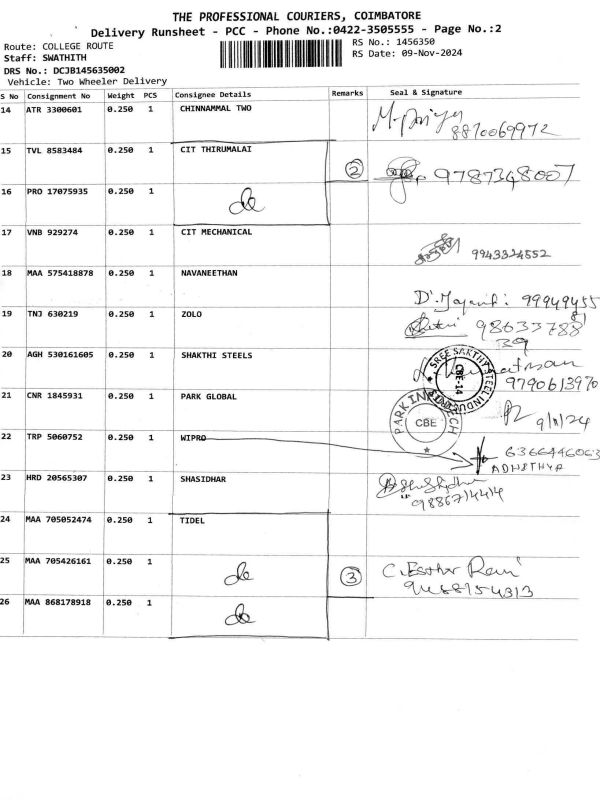 THE PROFESSIONAL COURIERS, COIMBATORE
Delivery Runsheet - PCC - Phone No.:0422-3505555 - Page No.:2
Route: COLLEGE ROUTE
RS No.: 1456350
Staff: SWATHITH
RS Date: 09-Nov-2024
DRS No.: DCJB145635002
Vehicle: Two Wheeler Delivery
S No Consignment No Weight PCS Consignee Details Remarks Seal & Signature
14 ATR 3300601 0.250 1 CHINNAMMAL TWO
8870069972
15 TVL 8583484 0.250 1 CIT THIRUMALAI
2 9787348007
16 PRO 17075935 0.250 1
do
17 VNB 929274 0.250 1 CIT MECHANICAL
9943324552
18 MAA 575418878 0.250 1 NAVANEETHAN
99949455
81
19 TNJ 630219 0.250 1 ZOLO
98633788
39
20 AGH 530161605 0.250 1 SHAKTHI STEELS
SREE SAKTHY STEEL INDU
CBE-14
9790613970
21 CNR 1845931 0.250 1 PARK GLOBAL
PARK IN TECH
CBE
9/11/24
22 TRP 5060752 0.250 1 WIPRO
6366446063
23 HRD 20565307 0.250 1 SHASIDHAR
9886714414
24 MAA 705052474 0.250 1 TIDEL
25 MAA 705426161 0.250 1
do 3 C. Esther Rani
9488754313
26 MAA 868178918 0.250 1
do